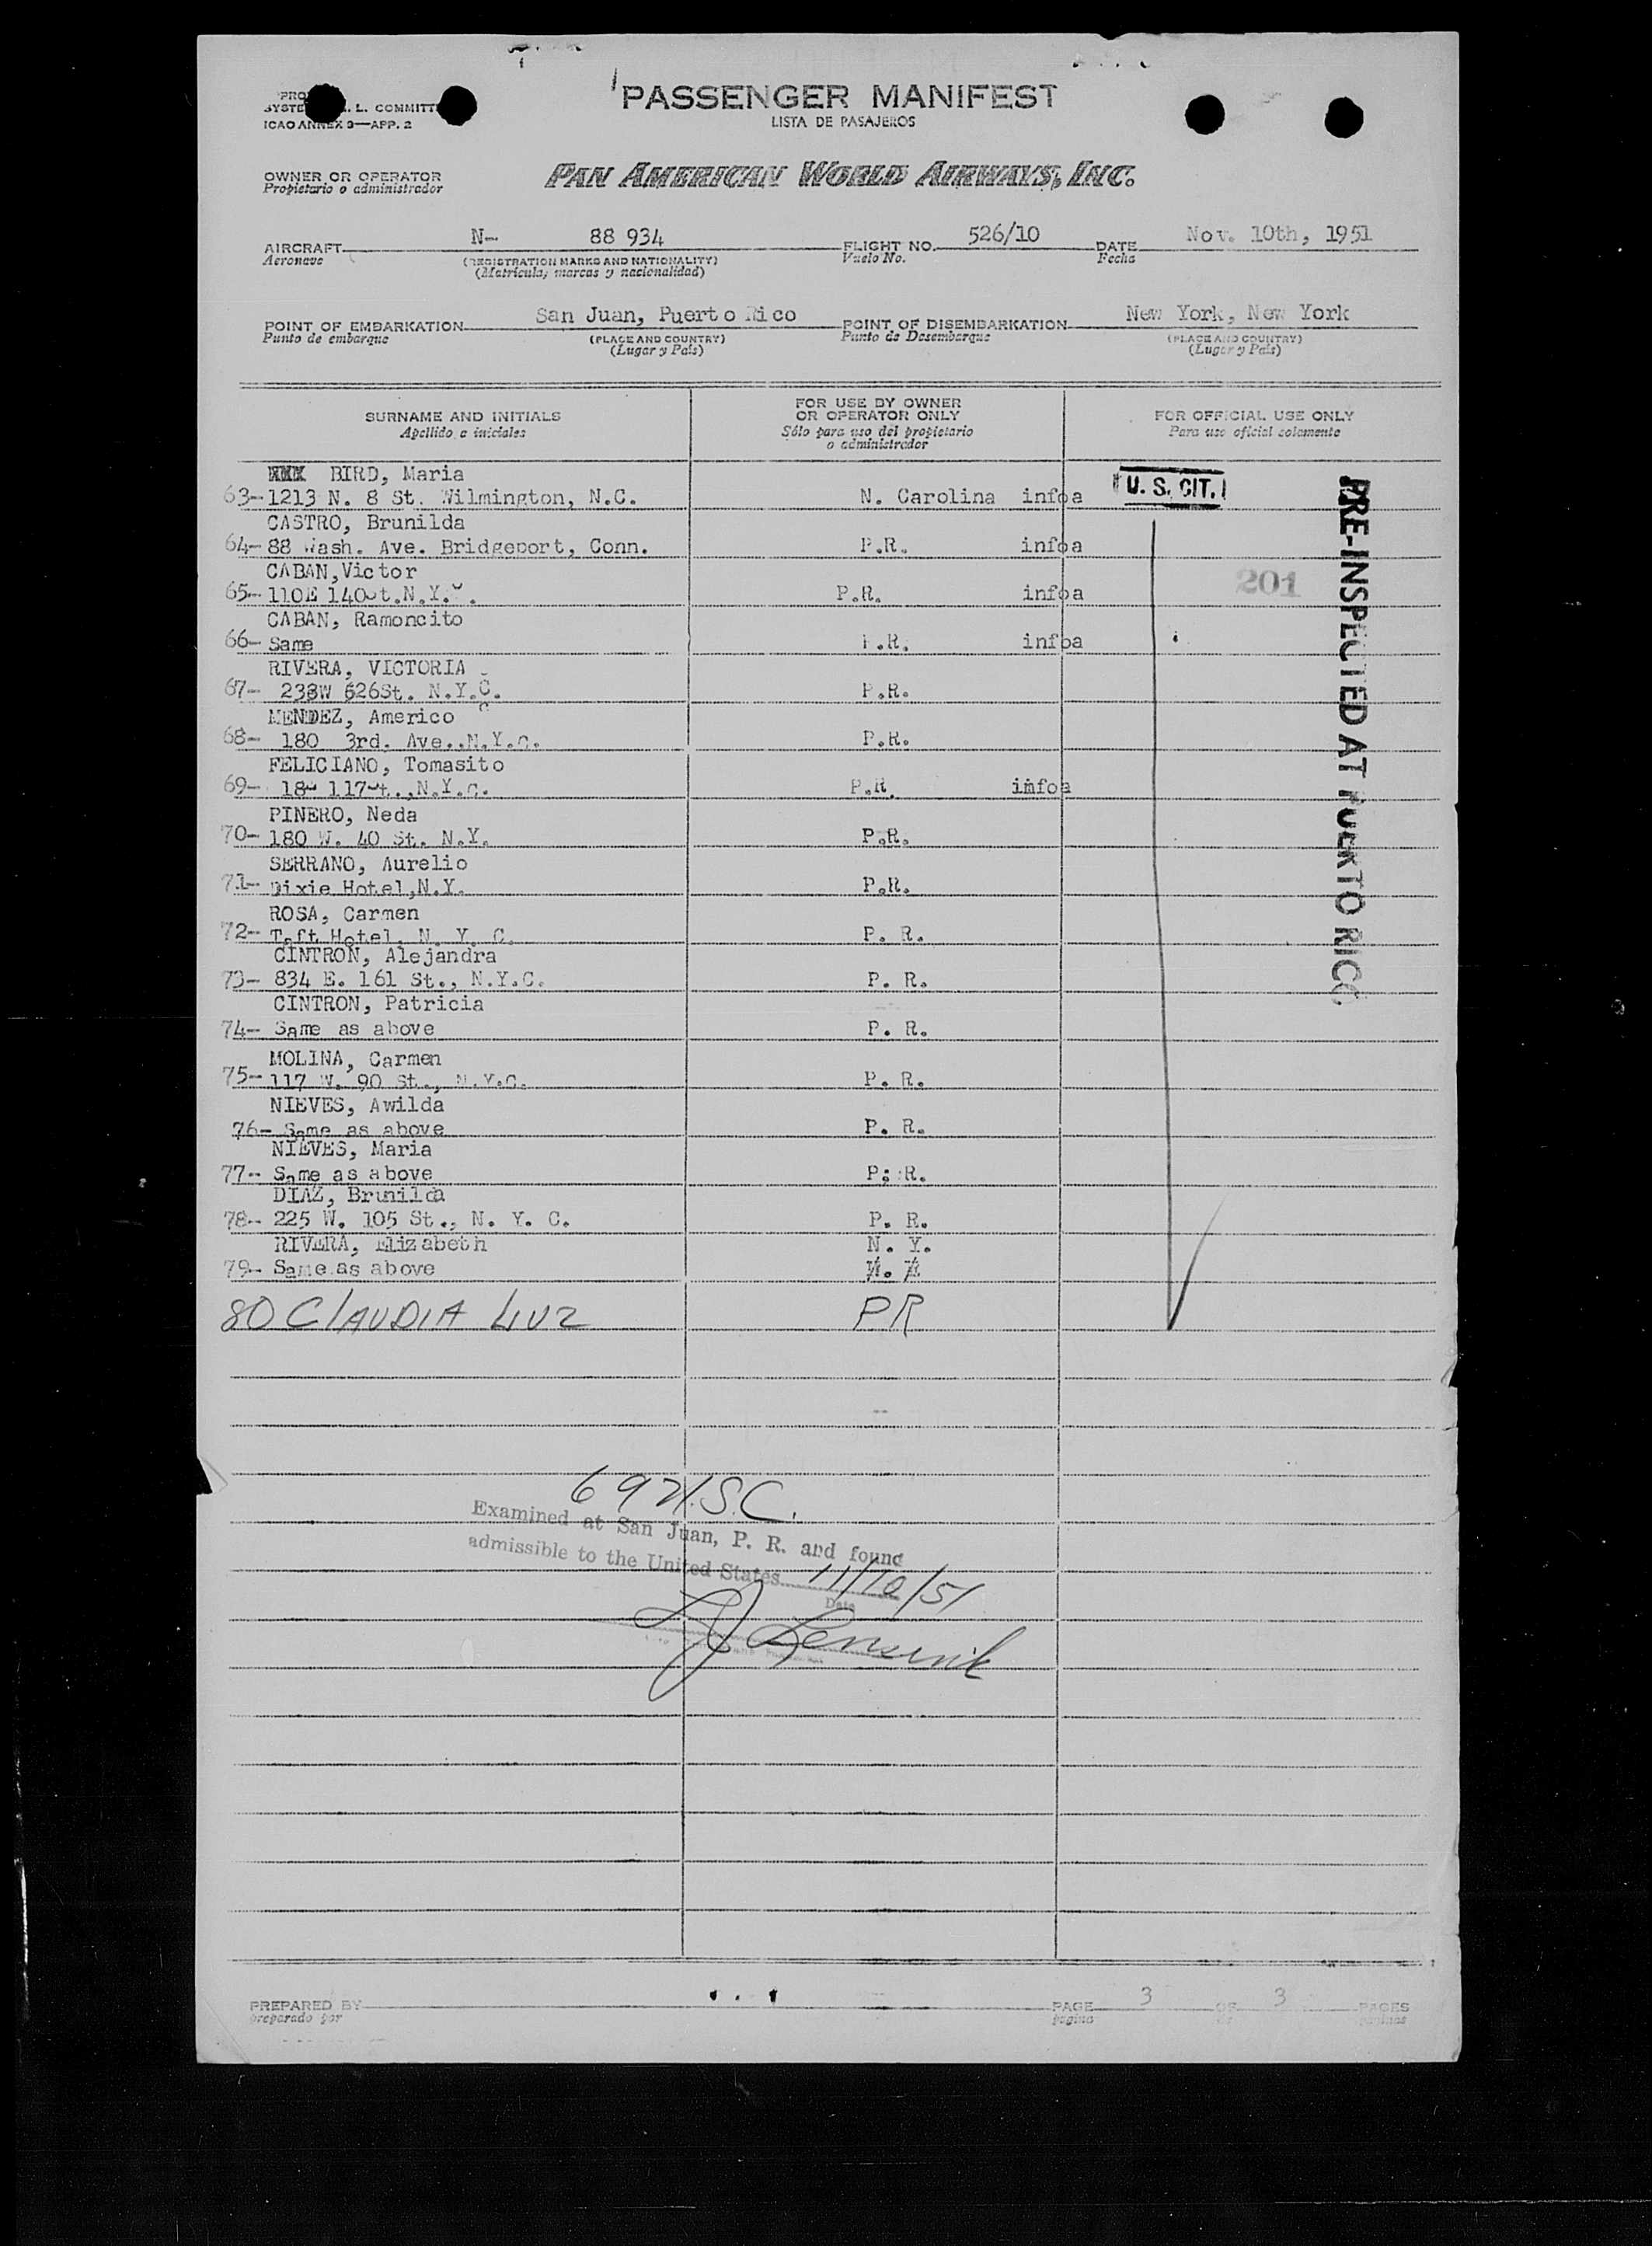 PASSENGER MANIFEST
LISTA DE PASAJEROS
L. COMMITT
ICAO ANNEX 9—APP. 2
OWNER OR OPERATOR
Propietario o administrador
PAN AMERICAN WORLD AIRWAYS, INC.
AIRCRAFT N- 88 934 FLIGHT NO. 526/10 DATE Nov. 10th, 1951
Aeronave (REGISTRATION MARKS AND NATIONALITY) Vuelo No. Fecha
(Matrícula, marcas y nacionalidad)
POINT OF EMBARKATION San Juan, Puerto Rico POINT OF DISEMBARKATION New York, New York
Punto de embarque (PLACE AND COUNTRY) Punto de Desembarque (PLACE AND COUNTRY)
(Lugar y País) (Lugar y País)
SURNAME AND INITIALS
Apellido e iniciales
FOR USE BY OWNER
OR OPERATOR ONLY
Sólo para uso del propietario
o administrador
FOR OFFICIAL USE ONLY
Para uso oficial solamente
BIRD, Maria
63- 1213 N. 8 St. Wilmington, N.C. N. Carolina infoa U. S. CIT.
CASTRO, Brunilda
64- 88 Wash. Ave. Bridgeport, Conn. P.R. infoa
CABAN, Victor
65- 110E 140 St. N.Y.C. P.R. infoa 201
CABAN, Ramoncito
66- Same P.R. infoa
RIVERA, VICTORIA
67- St. N.Y.C. P.R.
MENDEZ, Americo
68- 180 3rd. Ave. N.Y.C. P.R.
FELICIANO, Tomasito
69- 117 St., N.Y.C. P.R. infoa
PINERO, Neda
70- 180 W. 40 St. N.Y. P.R.
SERRANO, Aurelio
71- Dixie Hotel, N.Y. P.R.
ROSA, Carmen
72- Taft Hotel, N. Y. C. P. R.
CINTRON, Alejandra
73- 834 E. 161 St., N.Y.C. P. R.
CINTRON, Patricia
74- Same as above P. R.
MOLINA, Carmen
75- 117 W. 90 St., N.Y.C. P. R.
NIEVES, Awilda
76- Same as above P. R.
NIEVES, Maria
77- Same as above P. R.
DIAZ, Brunilda
78- 225 W. 105 St., N. Y. C. P. R.
RIVERA, Elizabeth N. Y.
79- Same as above
80 CLAUDIA LUZ PR
PRE-INSPECTED AT PUERTO RICO
69 U.S.C.
Examined at San Juan, P. R. and found
admissible to the United States 11/10/51
Date
PREPARED BY PAGE 3 OF 3 PAGES
preparado por página de páginas